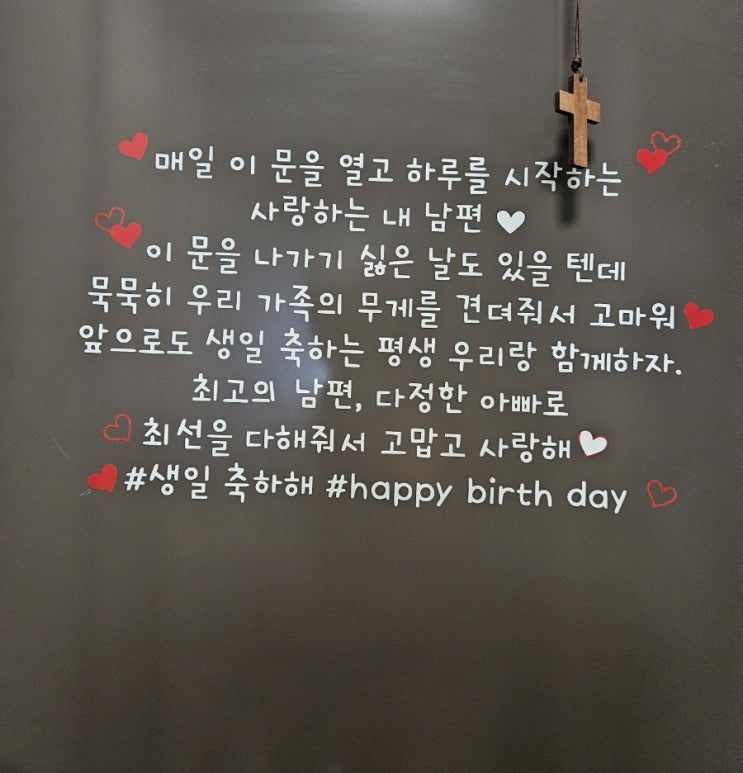 매일 이 문을 열고 하루를 시작하는
사랑하는 내 남편
이 문을 나가기 싫은 날도 있을 텐데
묵묵히 우리 가족의 무게를 견뎌줘서 고마워
앞으로도 생일 축하는 평생 우리랑 함께하자.
최고의 남편, 다정한 아빠로
최선을 다해줘서 고맙고 사랑해
#생일 축하해 #happy birth day